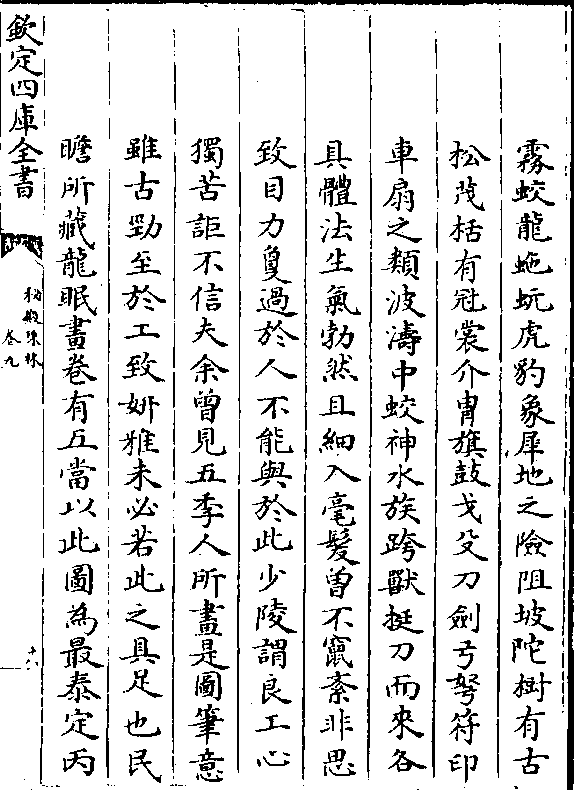 霧蛟龍虵蚖虎豹象犀地之險阻坡陀樹有古
松茂栝有冠裳介冑旗鼓戈殳刀劍弓弩符印
車扇之類波濤中蛟神水族跨獸挺刀而來各
具體法生氣勃然且細入毫髮曾不竄紊非思
致目力敻過於人不能與於此少陵謂良工心
獨苦詎不信夫余曾見五季人所畫是圖筆意
雖古勁至於工致妍雅未必若此之具足也民
瞻所藏龍眠畫卷有五當以此圖為最泰定丙
欽定四庫全書
秘殿珠林
卷九
十八